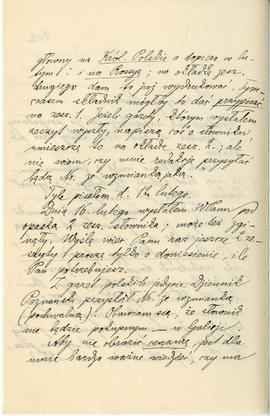 główny na Król. Polskie a dopiero w lu-
tym!: i na Rossyę; na okładkę zesz.
drugiego dam to już wydrukować. Tym-
czasem składnik mógłby to dać przypisać
na zesz. 1. Jeżeli gazety, którym wysłałem
zeszyt wyszły, napiszą coś o słowniku
umieszczę to na okładce zesz. 2.; ale
nie wiem, czy mnie redakcje przysyłać
będą Nr. ze wzmianką jaką."
Tyle pisałem d. 12 lutego.
Dnia 16. lutego wysłałem WPanu pod
opaską 2 zesz. słownika; może też zgi-
nęły. Wyślę więc Panu raz jeszcze 2 ze-
szyty i proszę tylko o doniesienie, ile
Pan potrzebujesz.
Z gazet polskich jedynie Dziennik
Poznański przysłał Nr. ze wzmianką
(pochwalną)! Obawiam się, że słownik
nie będzie pokupnym — w Galicji.
Aby nie obniżać cenę, jest dla
mnie bardzo ważne wiedzieć, czy na